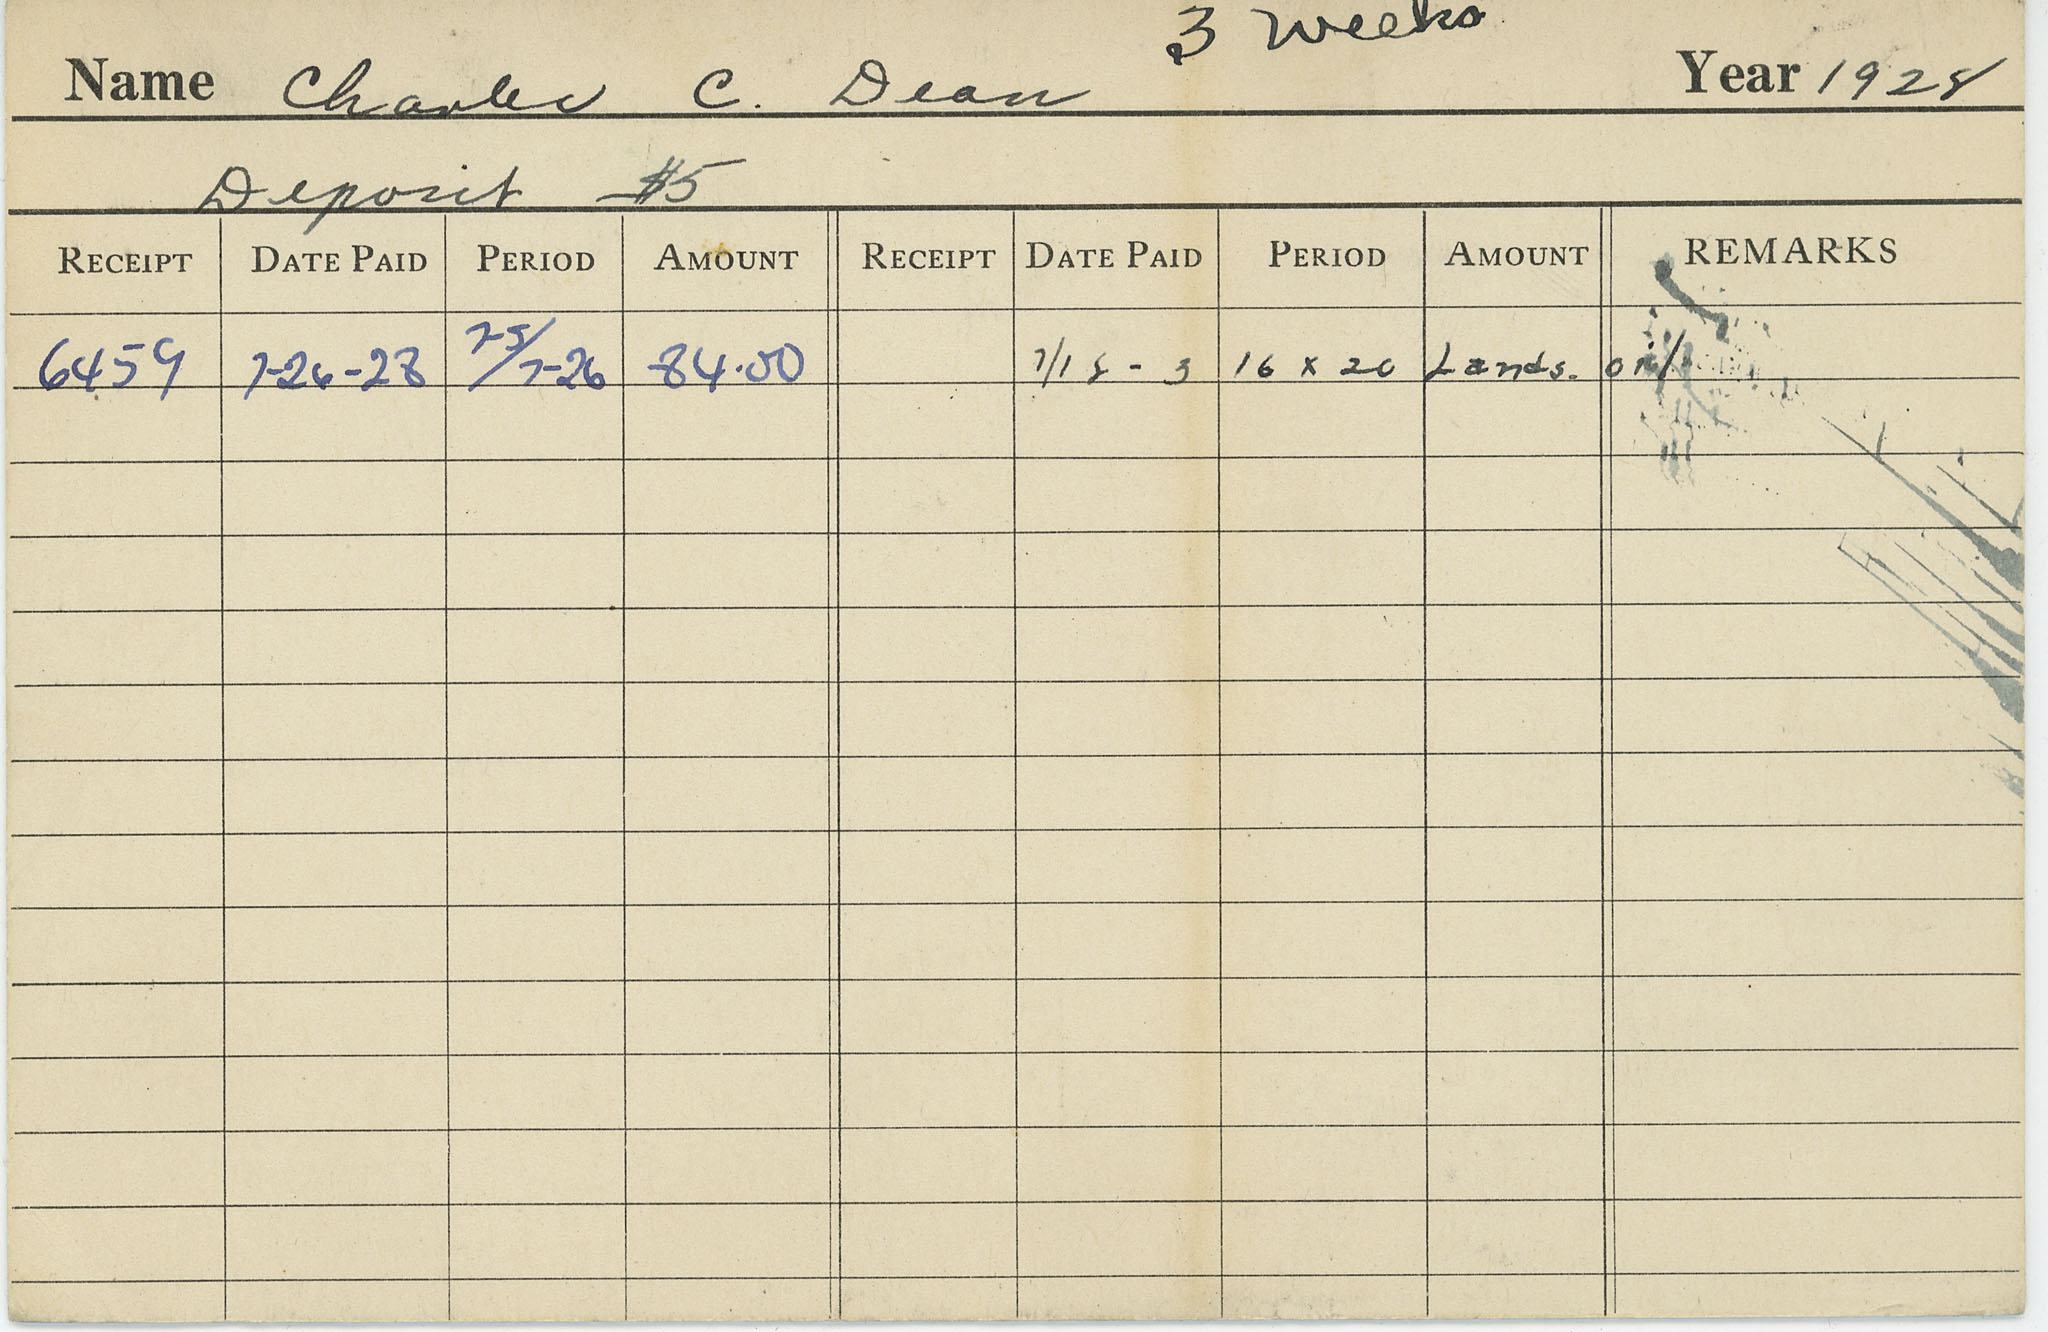 3 weeks
Name Charles C. Dean Year 1928
Deposit $5
RECEIPT DATE PAID PERIOD AMOUNT RECEIPT DATE PAID PERIOD AMOUNT REMARKS
6459 7-26-28 7-5/7-26 84.00 7/18 - 3 16 x 20 Lands. oil